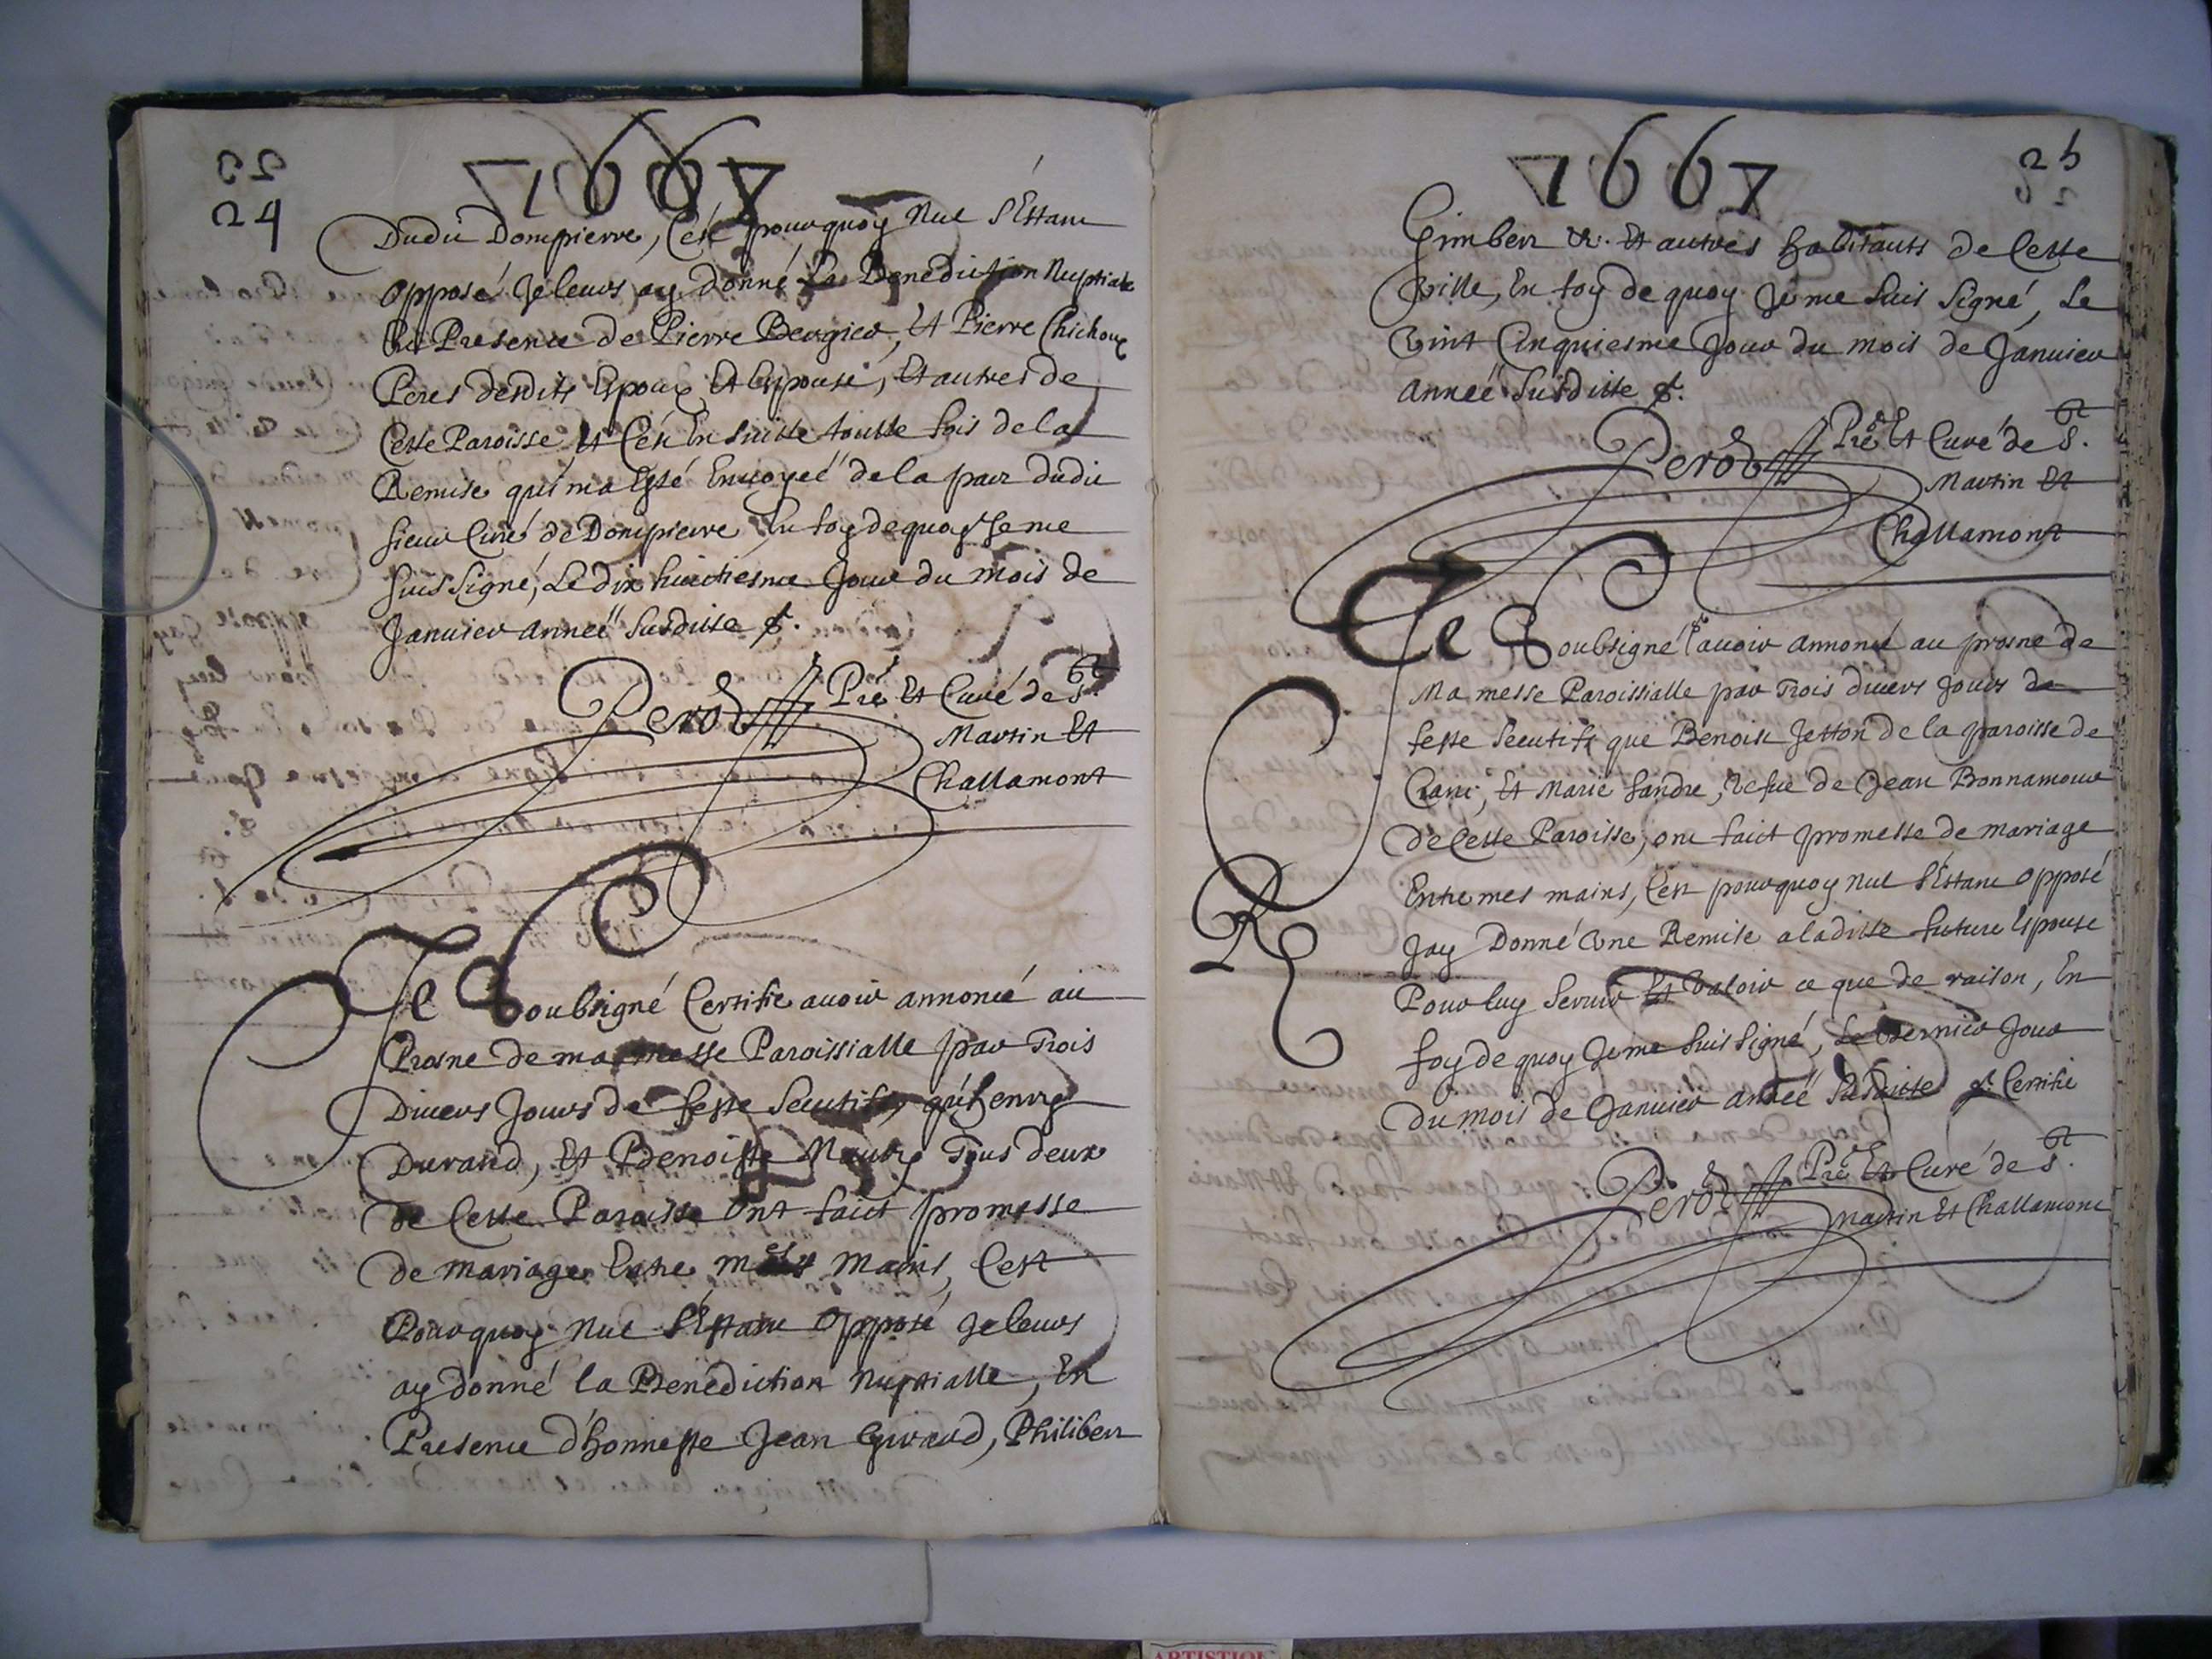 24
1667
Dudit Dompierre, C'est pourquoy Nul s'Estant
opposé Je leurs ay donné La Benediction Nuptiale
En Presence de Pierre Bergier, Et Pierre Chichoux
Peres desdits Epoux Et Espouse, Et autres de
Cette Paroisse Et C'est En suitte toutte fois de la
Remise qui m'a Esté Envoyeé de la part dudit
sieur Curé de Dompierre En foy de quoy Je me
suis signé, Le dix huictiesme Jour du mois de
Januier anneé susditte &.
Perod Pre Et Curé de St
Martin Et
Challamont
Je Soubsigné Certifie auoir annoncé au
Prosne de ma messe Paroissialle par Trois
Diuers Jours de feste secutifs, qu'henry
Durand, Et Benoiste Maury Tous deux
de Cette Paroisse Ont faict promesse
de mariage Entre mes mains, C'est
Pourquoy Nul s'Estant Opposé Je leurs
ay donné la Benediction Nuptialle, En
Presence d'honneste Jean Girard, Philibert
1667
25
Gimbert &. Et autres habitants de Cette
Ville, En foy de quoy Je me suis signé, Le
Vint Cinquiesme Jour du mois de Januier
anneé susditte &.
Perod Pre Et Curé de St
Martin Et
Challamont
Je Soubsigné auoir annoncé au prosne de
Ma messe Paroissialle par Trois diuers Jours de
feste secutifs que Benoist Jetton de la paroisse de
Crans, Et Marie fandre, Vefue de Jean Bonnamour
de Cette Paroisse, ont faict promesse de mariage
Entre mes mains, C'est pourquoy Nul s'Estant opposé
R
Jay Donné Une Remise a laditte future Espouse
Pour luy seruir Et Valoir ce que de raison, En
foy de quoy Je me suis signé, Le Dernier Jour
du mois de Januier anneé susditte & Certifie
Perod Pre Et Curé de St
Martin Et Challamont